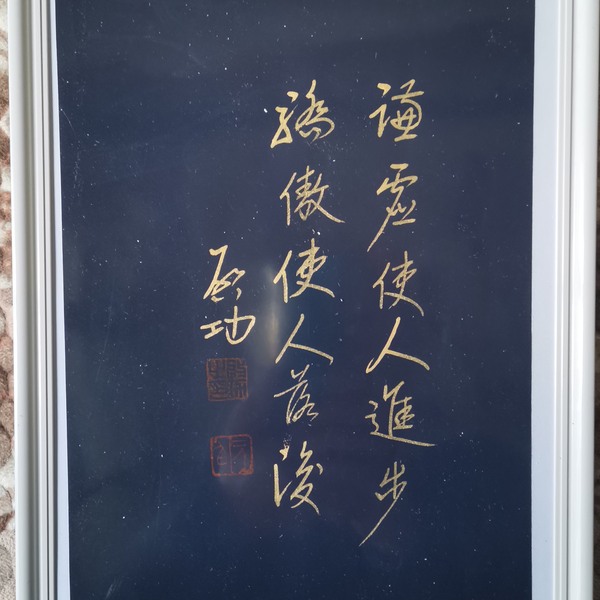 謙虛使人進步
驕傲使人落後
啟功